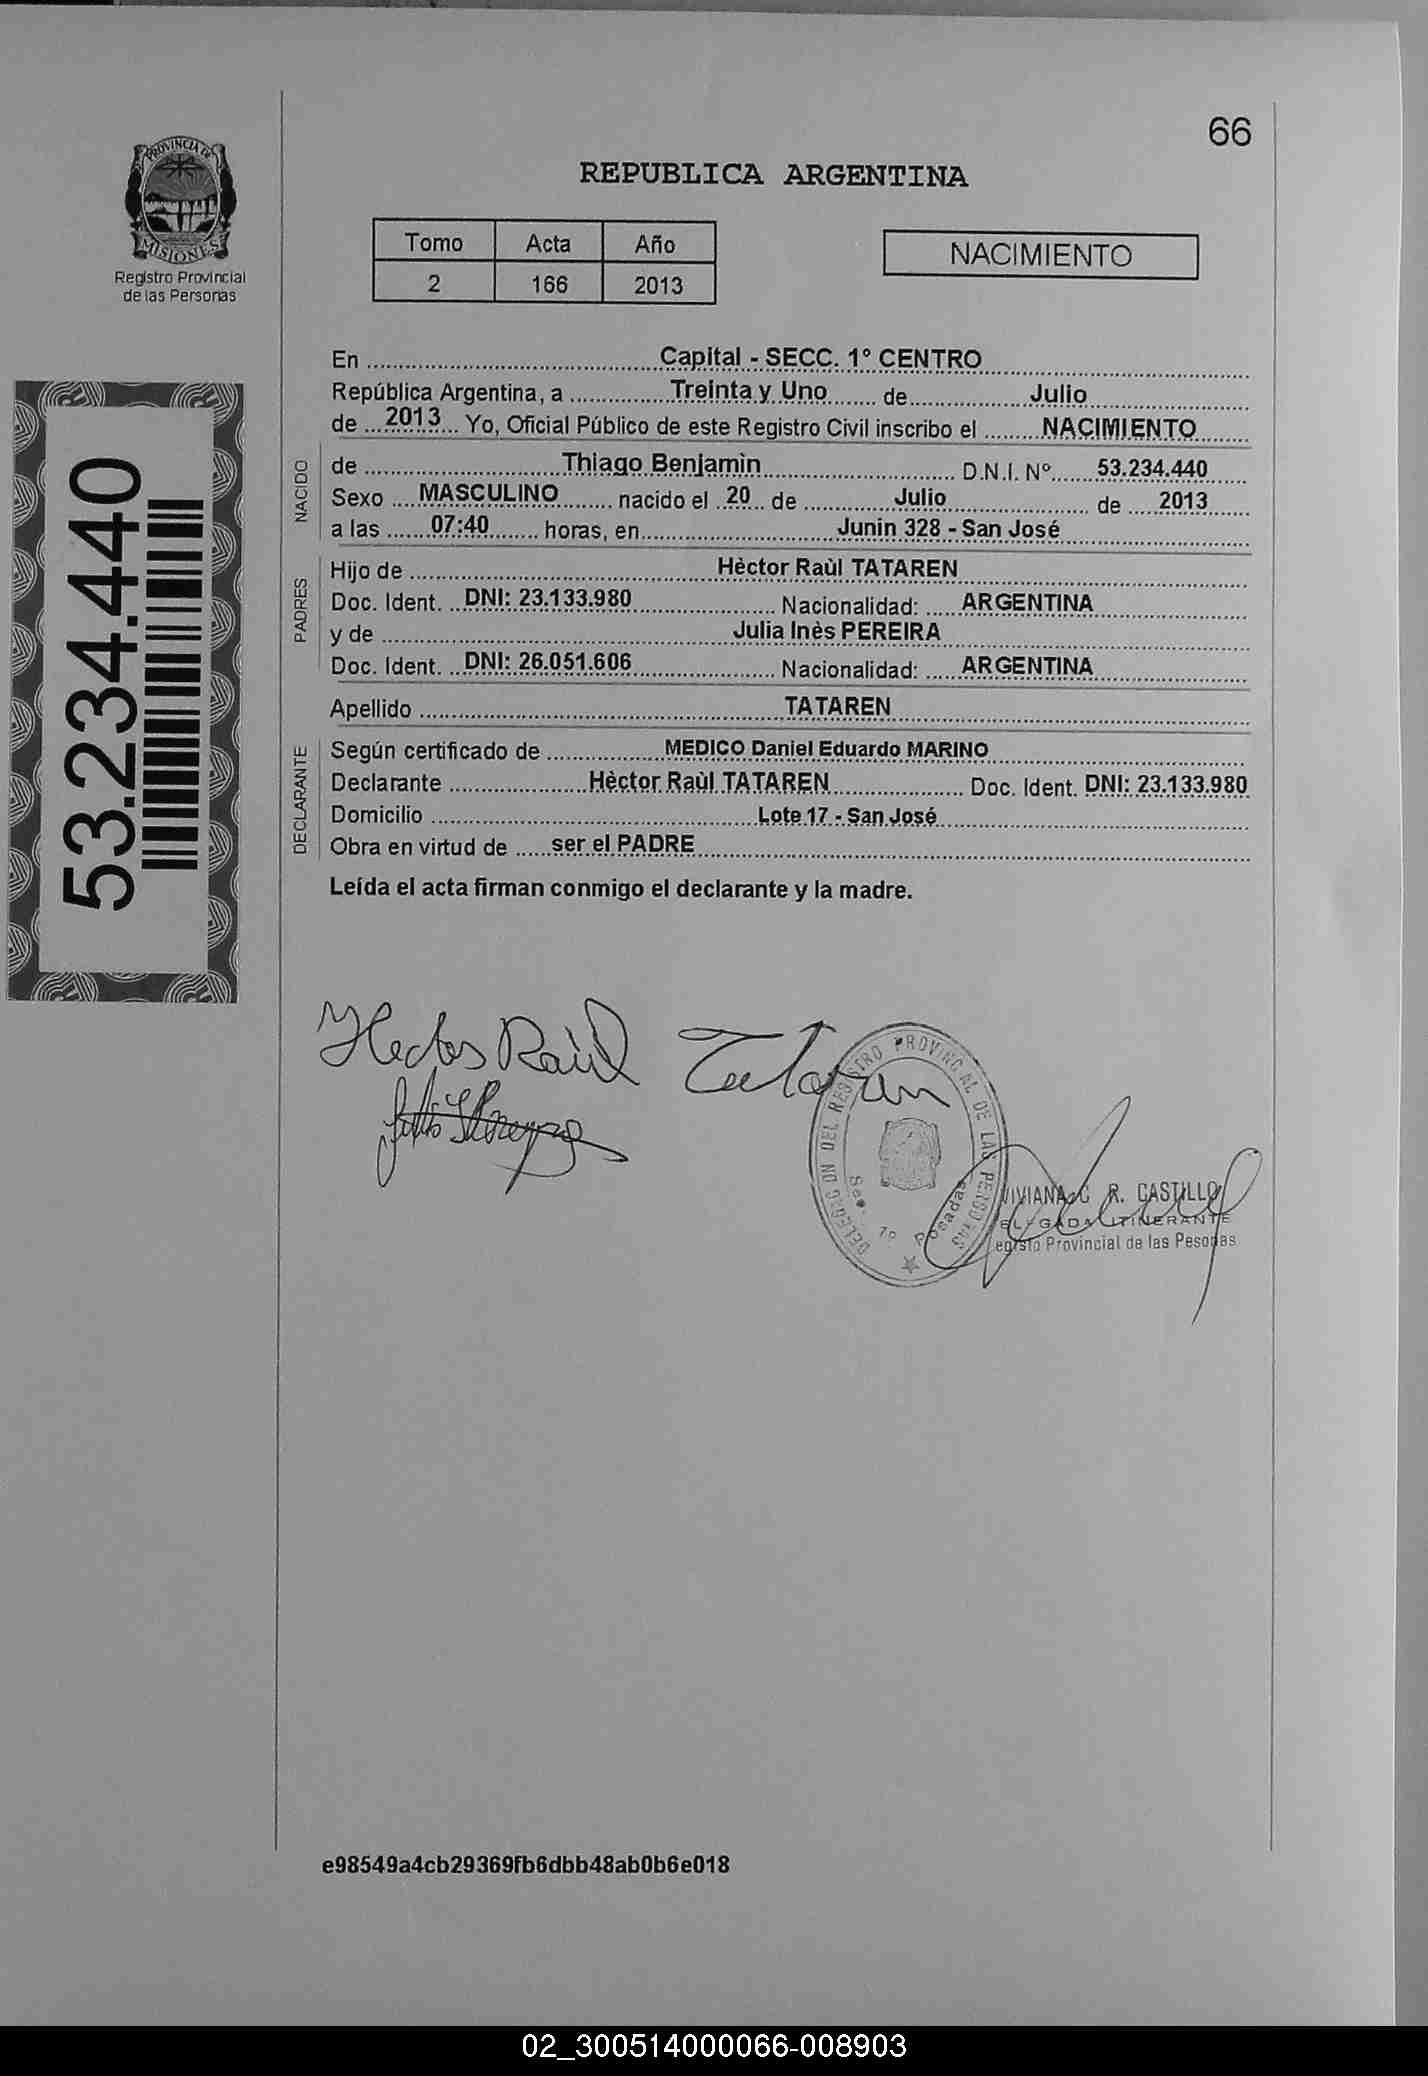 66
REPUBLICA ARGENTINA
PROVINCIA DE
MISIONES
Registro Provincial
de las Personas
Tomo Acta Año
2 166 2013
NACIMIENTO
53.234.440
En Capital - SECC. 1° CENTRO
República Argentina, a Treinta y Uno de Julio
de 2013 Yo, Oficial Público de este Registro Civil inscribo el NACIMIENTO
NACIDO
de Thiago Benjamìn D.N.I. Nº 53.234.440
Sexo MASCULINO nacido el 20 de Julio de 2013
a las 07:40 horas, en Junin 328 - San José
PADRES
Hijo de Hèctor Raùl TATAREN
Doc. Ident. DNI: 23.133.980 Nacionalidad: ARGENTINA
y de Julia Inès PEREIRA
Doc. Ident. DNI: 26.051.606 Nacionalidad: ARGENTINA
Apellido TATAREN
DECLARANTE
Según certificado de MEDICO Daniel Eduardo MARINO
Declarante Hèctor Raùl TATAREN Doc. Ident. DNI: 23.133.980
Domicilio Lote 17 - San José
Obra en virtud de ser el PADRE
Leída el acta firman conmigo el declarante y la madre.
Hector Raùl Tataren
DELEGACION DEL REGISTRO PROVINCIAL DE LAS PERSONAS
Posadas
VIVIANA C. R. CASTILLO
ELEGADA ITINERANTE
egisto Provincial de las Pesonas
e98549a4cb29369fb6dbb48ab0b6e018
02_300514000066-008903